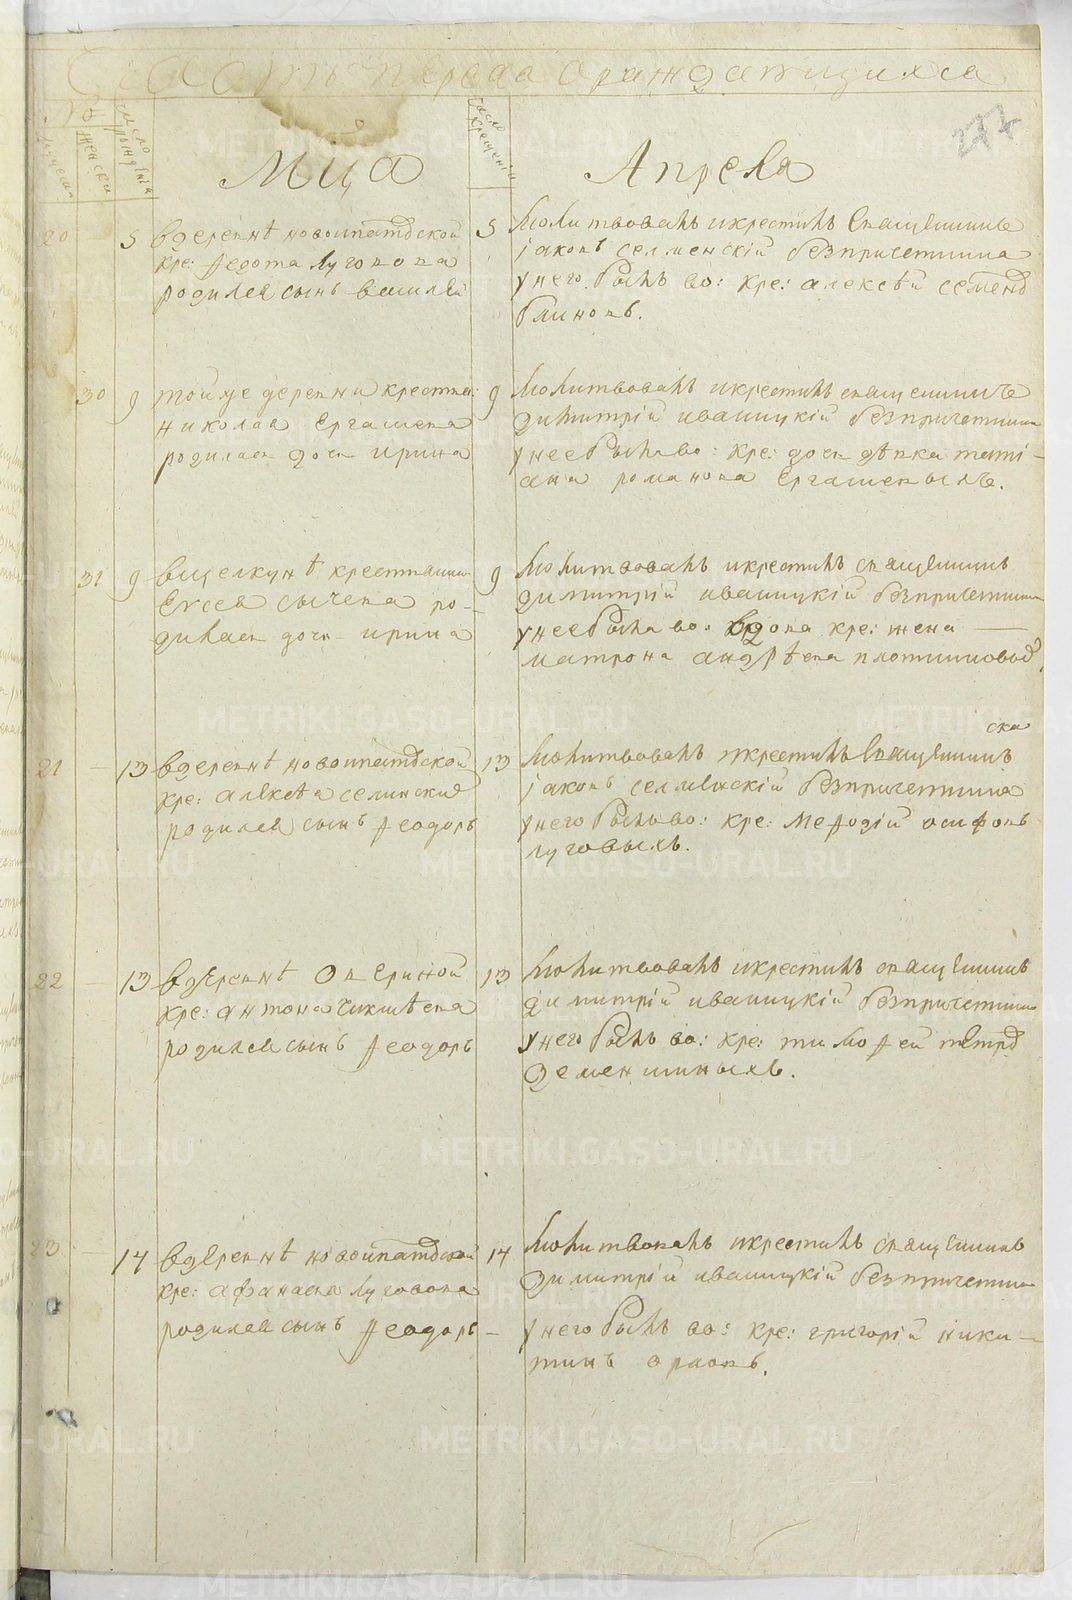 Часть первая ораждающихся
277
№
женска
число рождения
число крещения
Мца Апреля
20 5 вдеревнѣ новоипатовской
кре: Федота Луговова
родился сынъ василей
5 Молитвовалъ икрестилъ священникъ
іаковъ селменскій безпричетника
унего былъ во: кре: алексѣй семено
блиновъ.
30 9 тойже деревни крестьяни:
николая Ергашева
родилась дочь ирина
9 Молитвовалъ икрестилъ священникъ
димитрій иваницкій безпричетника
унее была во: кре: дочь дѣвка тати-
ана романова Ергашевыхъ.
31 9 вщелкунѣ крестьянина
Евсея сычева ро-
дилась дочь ирина
9 Молитвовалъ икрестилъ священникъ
димитрій иваницкій безпричетника
унее была во: вдова кре: жена
матрона андрѣева плотниковыхъ
21 13 вдеревнѣ новоипатовской
кре: алексѣя селинских
родился сынъ Феодоръ
ска
13 Молитвовалъ икрестилъ священникъ
іаковъ селменскій безпричетника
унего былъ во: кре: Мефодій осиповъ
луговыхъ.
22 13 вдеревнѣ Овериной
кре: антона чикишева
родился сынъ Феодоръ
13 Молитвовалъ икрестилъ священникъ
димитрій иваницкій безпричетника
унего былъ во: кре: тимофей петро
деменшиныхъ.
23 14 вдеревнѣ новоипатовской
кре: афанасья Луговова
родился сынъ Феодоръ
14 Молитвовалъ икрестилъ священникъ
димитрій иваницкій безпричетника
унего былъ во: кре: григорій ники-
тинъ орловъ.
METRIKI.GASO-URAL.RU